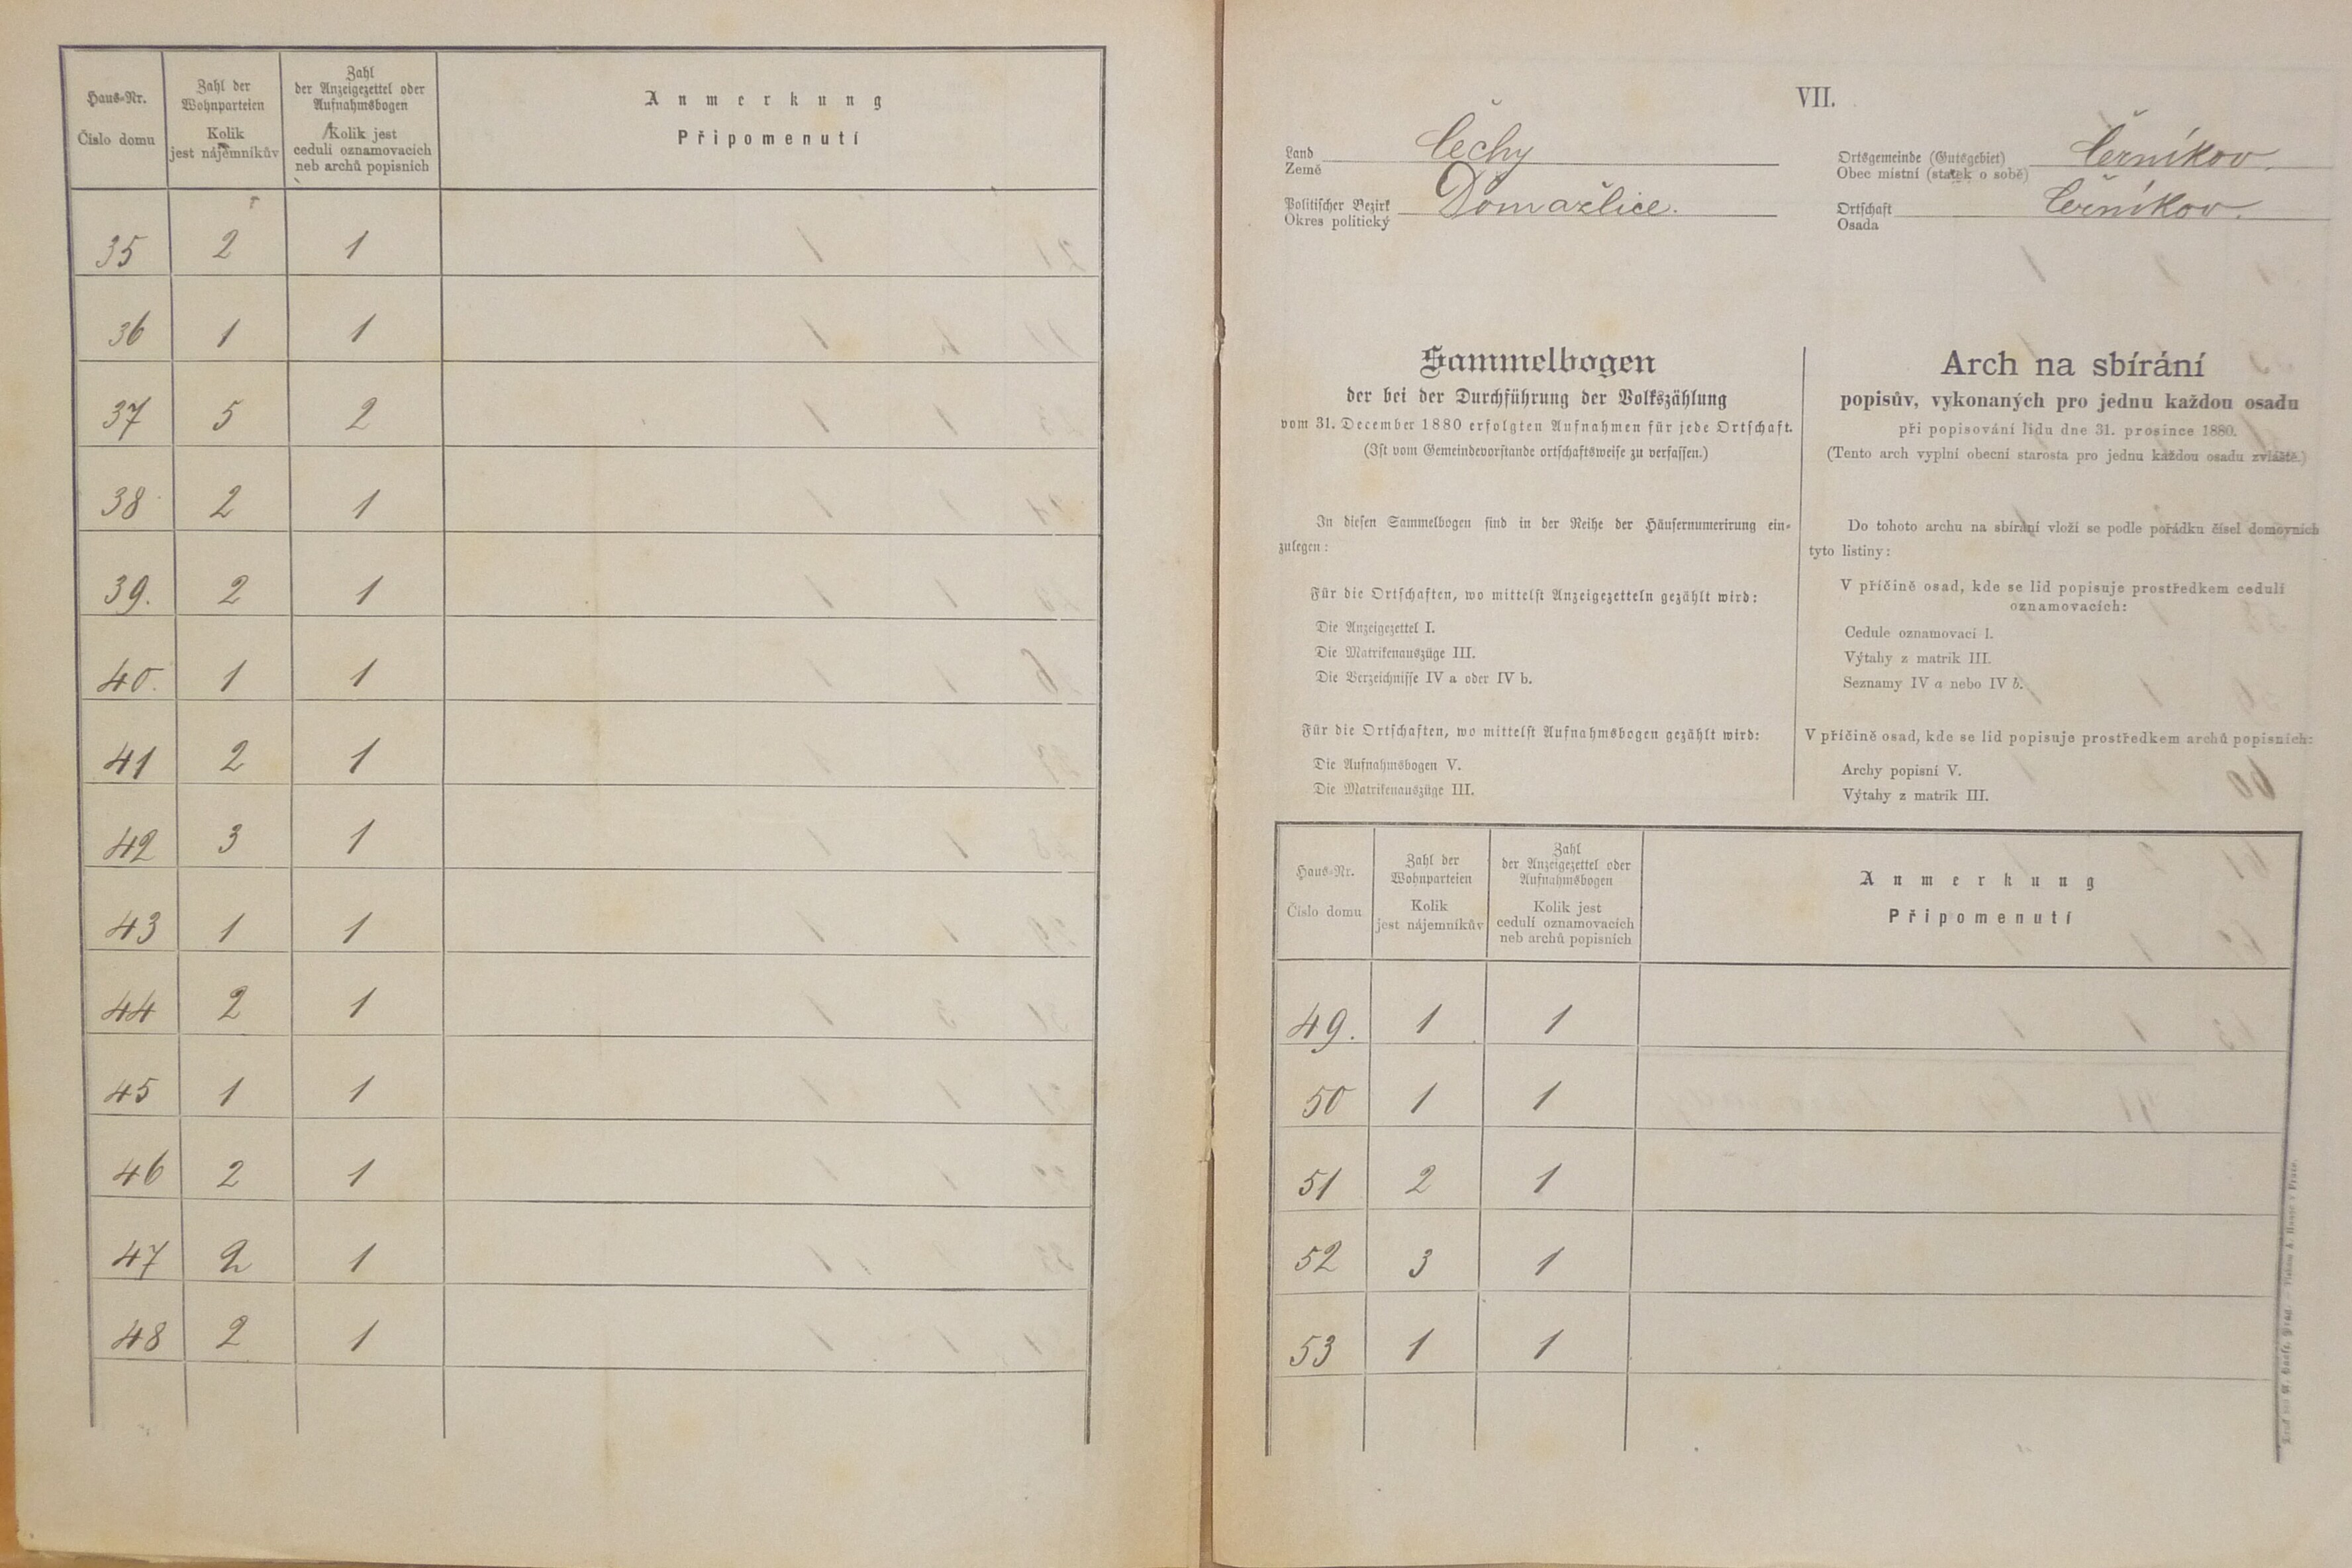 Haus-Nr.
Číslo domu
Zahl der
Wohnparteien
Kolik
jest nájemníkův
Zahl
der Anzeigezettel oder
Aufnahmsbogen
Kolik jest
cedulí oznamovacích
neb archů popisních
Anmerkung
Připomenutí
35 2 1
36 1 1
37 5 2
38 2 1
39. 2 1
40. 1 1
41 2 1
42 3 1
43 1 1
44 2 1
45 1 1
46 2 1
47 2 1
48 2 1
VII.
Land
Země
Čechy
Politischer Bezirk
Okres politický
Domažlice.
Ortsgemeinde (Gutsgebiet)
Obec místní (statek o sobě)
Černíkov.
Ortschaft
Osada
Černíkov.
Sammelbogen
der bei der Durchführung der Volkszählung
vom 31. December 1880 erfolgten Aufnahmen für jede Ortschaft.
(Ist vom Gemeindevorstande ortschaftsweise zu verfassen.)
In diesen Sammelbogen sind in der Reihe der Häusernumerirung ein-
zulegen:
Für die Ortschaften, wo mittelst Anzeigezetteln gezählt wird:
Die Anzeigezettel I.
Die Matrikenauszüge III.
Die Verzeichnisse IV a oder IV b.
Für die Ortschaften, wo mittelst Aufnahmsbogen gezählt wird:
Die Aufnahmsbogen V.
Die Matrikenauszüge III.
Arch na sbírání
popisův, vykonaných pro jednu každou osadu
při popisování lidu dne 31. prosince 1880.
(Tento arch vyplní obecní starosta pro jednu každou osadu zvláště.)
Do tohoto archu na sbírání vloží se podle pořádku čísel domovních
tyto listiny:
V příčině osad, kde se lid popisuje prostředkem cedulí
oznamovacích:
Cedule oznamovací I.
Výtahy z matrik III.
Seznamy IV a nebo IV b.
V příčině osad, kde se lid popisuje prostředkem archů popisních:
Archy popisní V.
Výtahy z matrik III.
Haus-Nr.
Číslo domu
Zahl der
Wohnparteien
Kolik
jest nájemníkův
Zahl
der Anzeigezettel oder
Aufnahmsbogen
Kolik jest
cedulí oznamovacích
neb archů popisních
Anmerkung
Připomenutí
49. 1 1
50 1 1
51 2 1
52 3 1
53 1 1